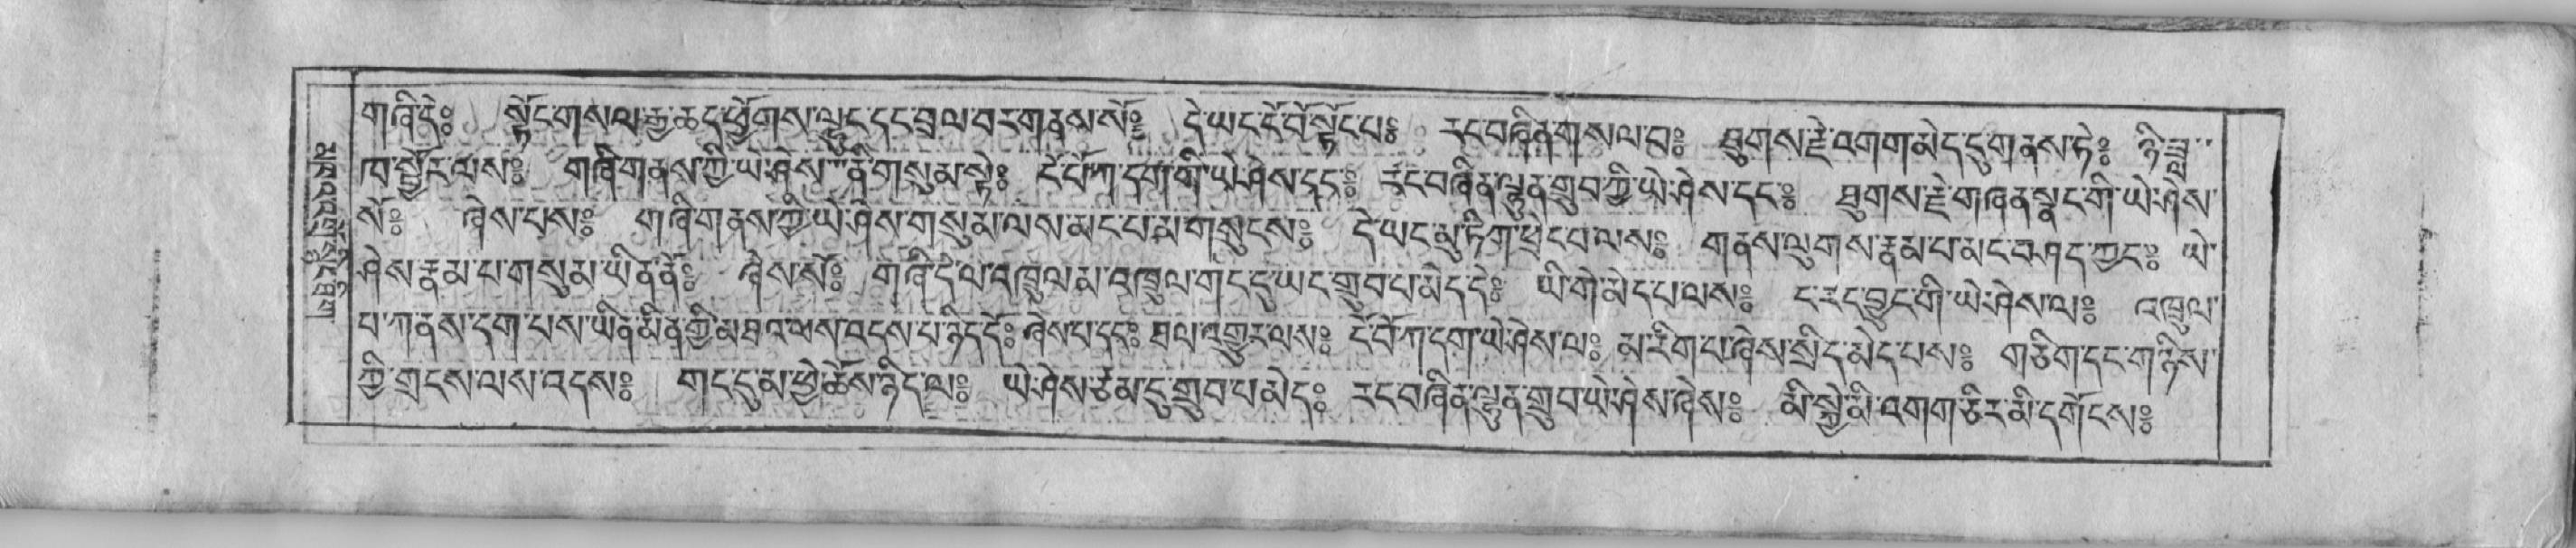 གཞི་དེ༔ སྟོང་གསལ་རྒྱ་ཆད་ཕྱོགས་ལྷུང་དང་བྲལ་བར་གནས་སོ༔ དེ་ཡང་ངོ་བོ་སྟོང་པ༔ རང་བཞིན་གསལ་བ༔ ཐུགས་རྗེ་འགག་མེད་དུ་གནས་ཏེ༔ ཉི་ཟླ་
ཁ་སྦྱོར་ལས༔ གཞི་གནས་ཀྱི་ཡེ་ཤེས་ནི་གསུམ་སྟེ༔ ངོ་བོ་ཀ་དག་གི་ཡེ་ཤེས་དང༔ རང་བཞིན་ལྷུན་གྲུབ་ཀྱི་ཡེ་ཤེས་དང༔ ཐུགས་རྗེ་གཞན་སྣང་གི་ཡེ་ཤེས་
སོ༔ ཞེས་པས༔ གཞི་གནས་ཀྱི་ཡེ་ཤེས་གསུམ་ལས་མང་པ་མ་གསུངས༔ དེ་ཡང་མུ་ཏིག་ཕྲེང་བ་ལས༔ གནས་ལུགས་རྣམ་པ་མང་བཤད་ཀྱང༔ ཡེ་
ཤེས་རྣམ་པ་གསུམ་ཡིན་ནོ༔ ཞེས་སོ༔ གཞི་དེ་ལ་འཁྲུལ་མ་འཁྲུལ་གང་དུ་ཡང་གྲུབ་པ་མེད་དེ༔ ཡི་གེ་མེད་པ་ལས༔ ང་རང་བྱུང་གི་ཡེ་ཤེས་ལ༔ འཁྲུལ་
པ་ཀ་ནས་དག་པས་ཡིན་མིན་གྱི་མཐའ་ལས་འདས་པ་ཉིད་དོ༔ ཞེས་པ་དང༔ ཐལ་འགྱུར་ལས༔ ངོ་བོ་ཀ་དག་ཡེ་ཤེས་ལ༔ མ་རིག་པ་ཞེས་སྲིད་མེད་པས༔ གཅིག་དང་གཉིས་
ཀྱི་གྲངས་ལས་འདས༔ གང་དུ་མ་ཕྱེ་ཆོས་ཉིད་ལ༔ ཡེ་ཤེས་ཙམ་དུ་གྲུབ་པ་མེད༔ རང་བཞིན་ལྷུན་གྲུབ་ཡེ་ཤེས་ཞེས༔ མི་སྐྱེ་མི་འགག་ཅིར་མི་དགོངས༔